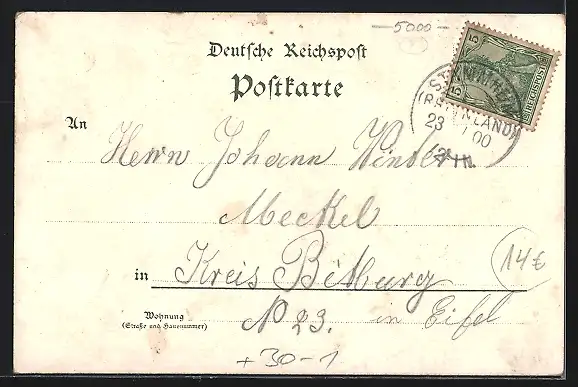 5000
Deutsche Reichspost
Postkarte
5
REICHSPOST
(RHEINLAND)
23 00
An
Herrn Johann
Meckel
14€
in Kreis Bitburg
Wohnung
(Straße und Hausnummer)
No 23. in Eifel
+30-1